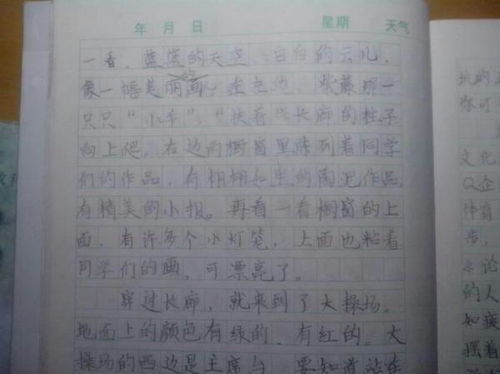 年 月 日 星期 天气
一看，蓝蓝的天空，白白的云儿，
像一幅美丽画，走左边，紫藤那一
只只“小手”，“扶着”长廊的柱子
向上爬，右边的橱窗里陈列着同学
们的作品，有栩栩如生的陶泥作品
有精美的小报。再看一看橱窗的上
面，有许多个小灯笼，上面也粘着
同学们的画，可漂亮了。
穿过长廊，就来到了大操场。
地面上的颜色有绿的，有红的。大
操场的西边是主席台，要知道站在
文化
企
体育
造，
论
的人
如
摇着